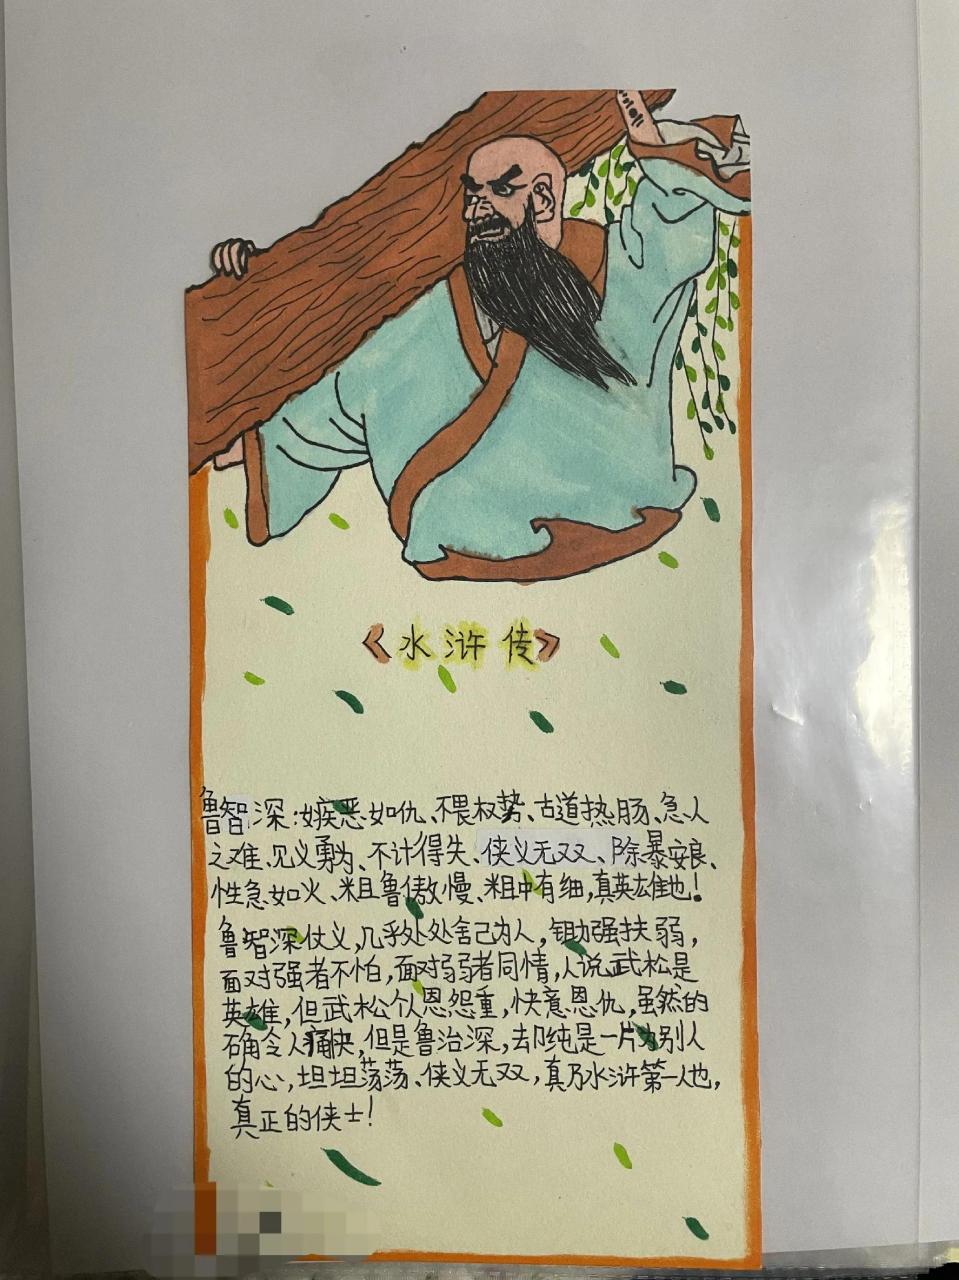 《水浒传》
鲁智深:嫉恶如仇、不畏权势、古道热肠、急人
之难、见义勇为、不计得失、侠义无双、除暴安良、
性急如火、粗鲁傲慢、粗中有细,真英雄也!
鲁智深仗义,几乎处处舍己为人,锄强扶弱,
面对强者不怕,面对弱者同情,人说武松是
英雄,但武松个人恩怨重,快意恩仇,虽然的
确令人痛快,但是鲁治深,却纯是一片为别人
的心,坦坦荡荡、侠义无双,真乃水浒第一人也,
真正的侠士!